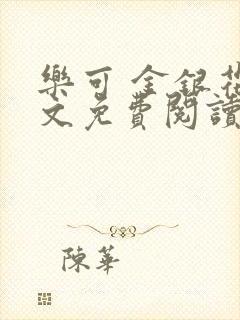 樂可 金銀花
文免費閱讀
陳華